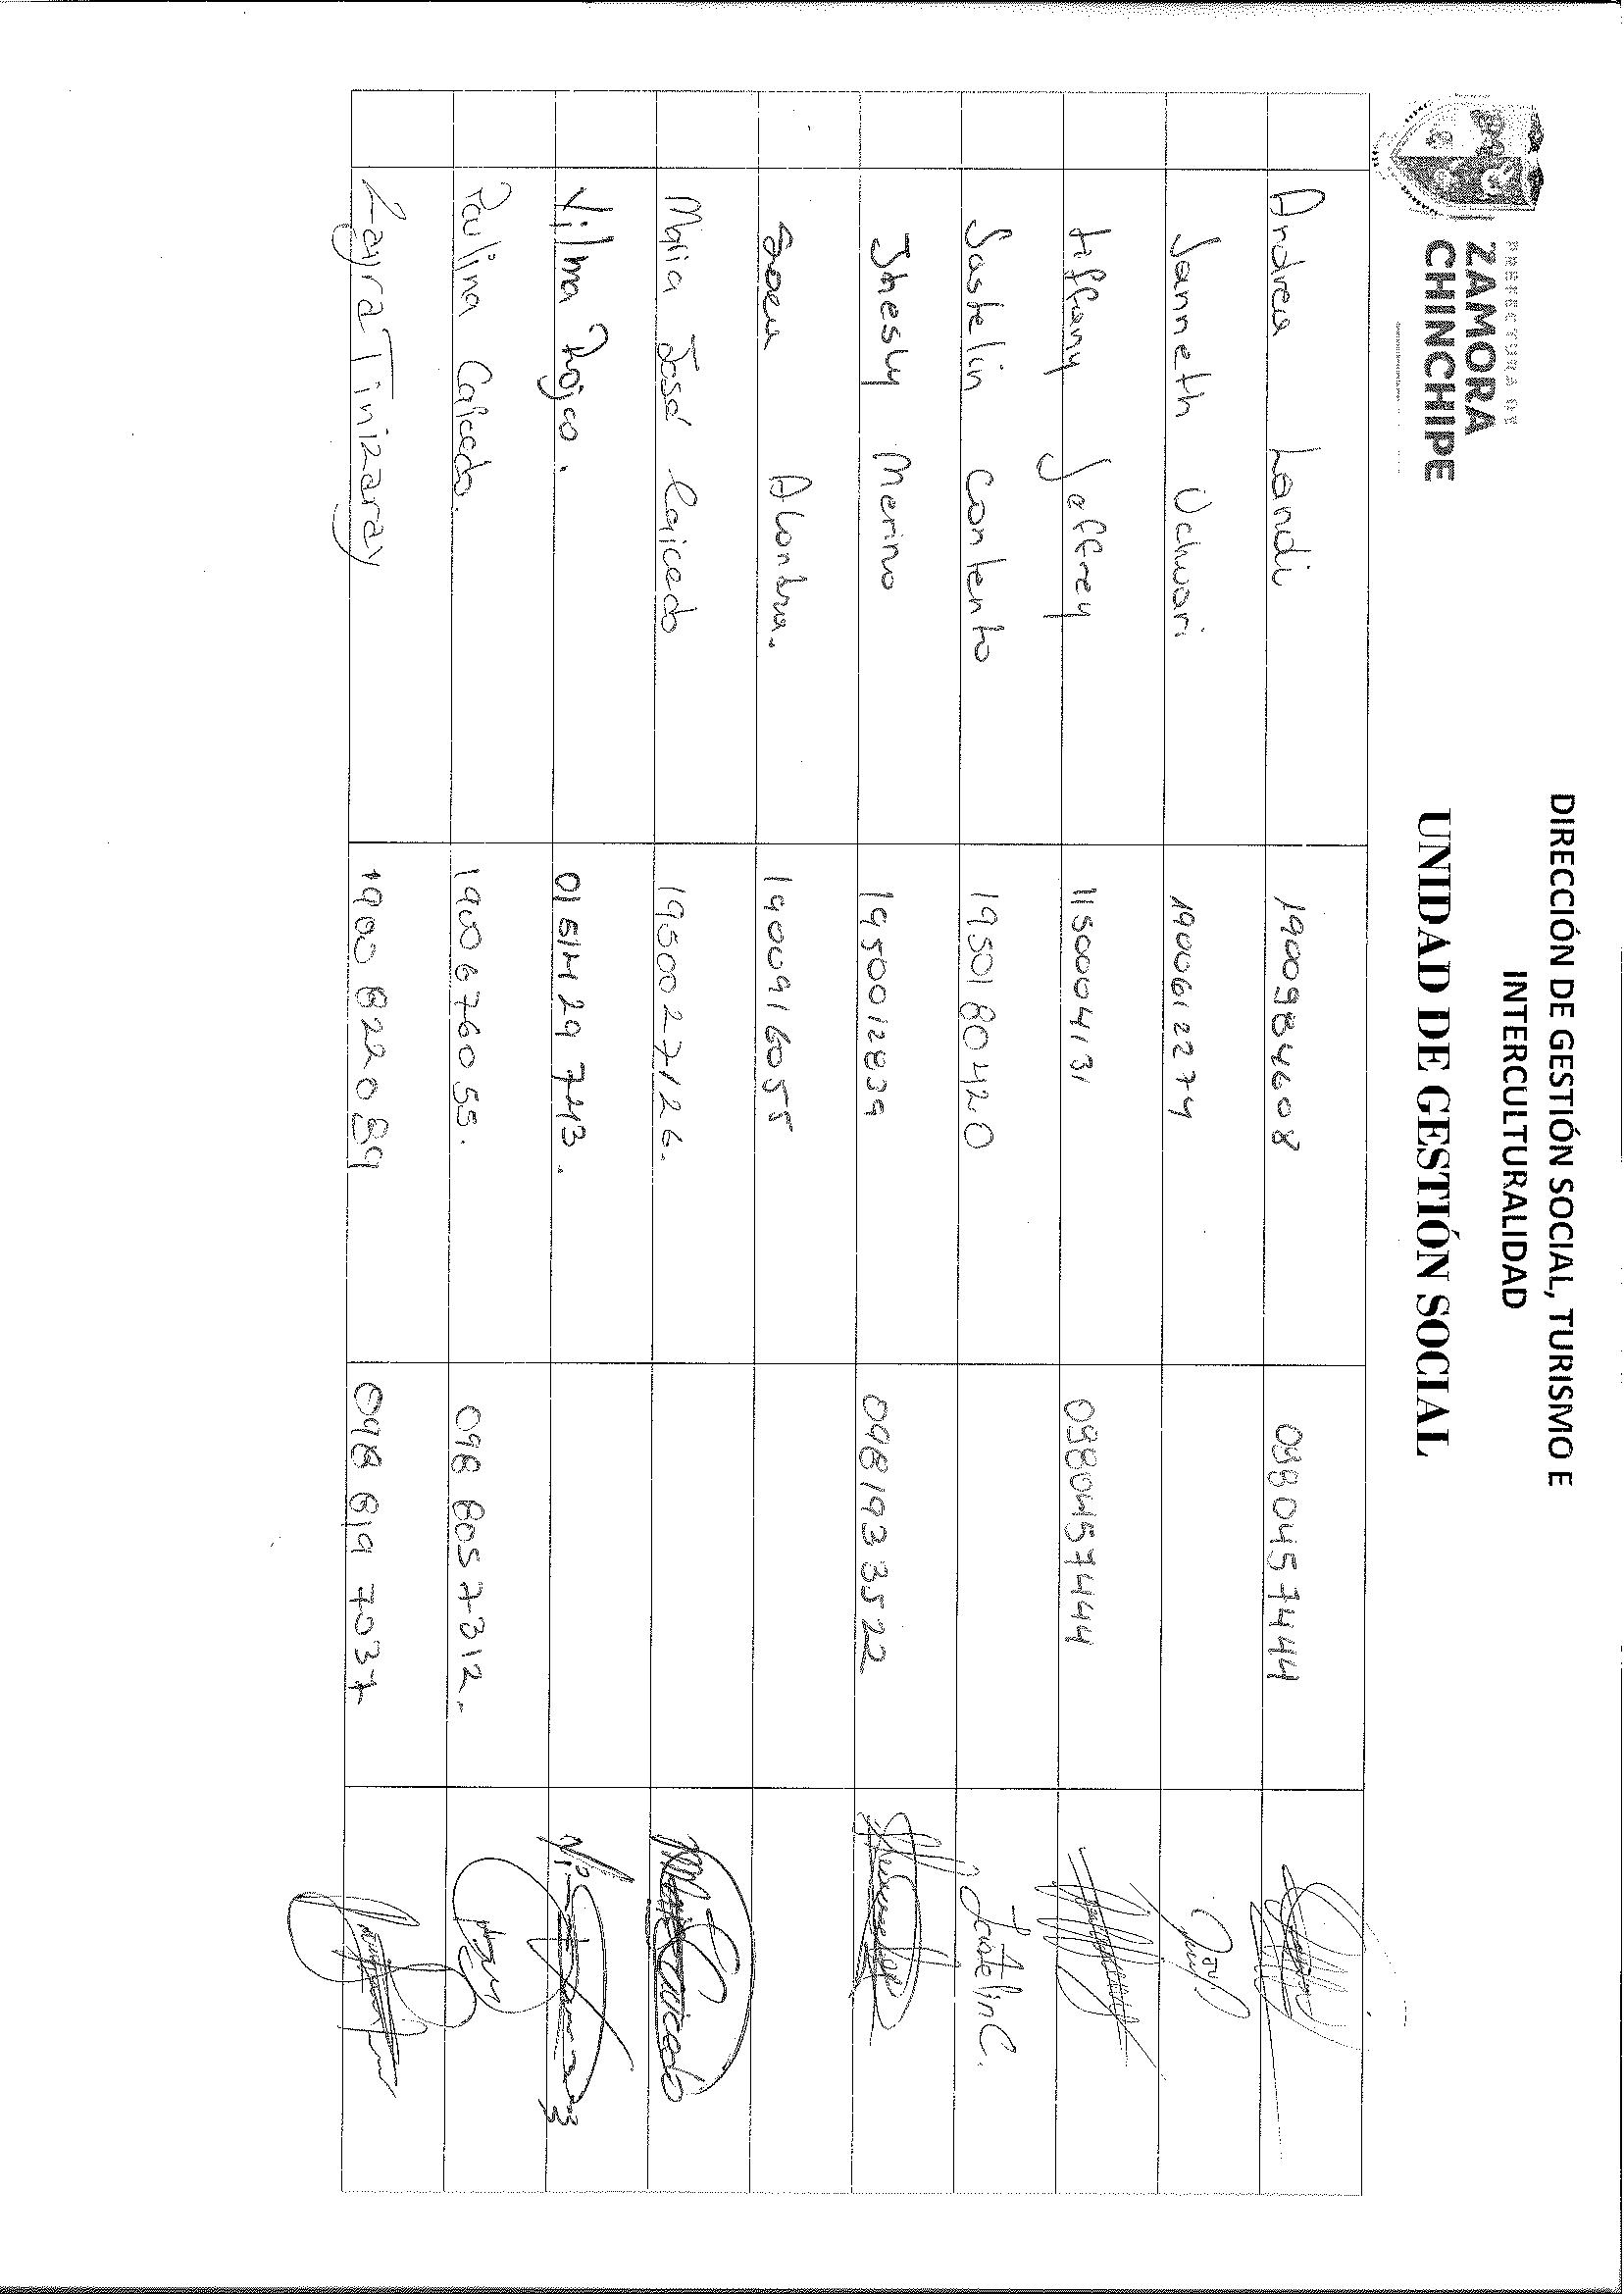 PREFECTURA DE
ZAMORA
CHINCHIPE
DIRECCIÓN DE GESTIÓN SOCIAL, TURISMO E
INTERCULTURALIDAD
UNIDAD DE GESTIÓN SOCIAL
Andrea Landi 1900984608 0980457444
Janneth Uchuari 1900612274
tiffany Jaffrey 1150004131 0980457444
Jostelin Contento 1950180420 Jostelin C.
Jhesly Merino 1950012839 0981933522
Alondra. 1900916055
Maria José Caicedo 1950027126.
Vilma Rojas. 743.
Paulina Caicedo. 1900676055. 098 8057312.
Zayra Tinizaray 1900822089 098 819 7037